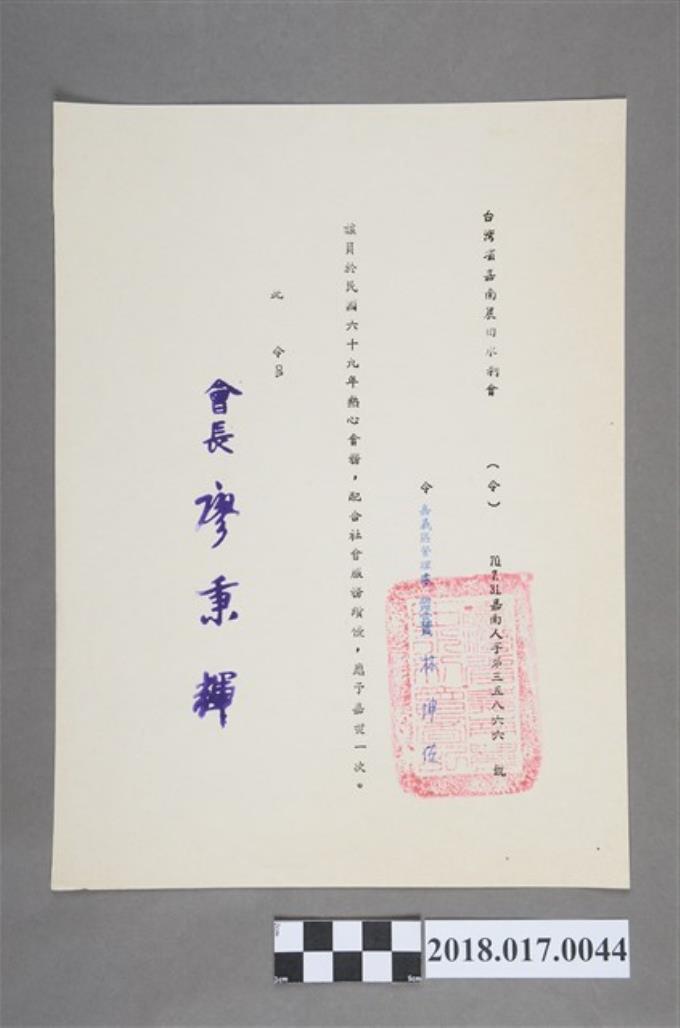 台灣省嘉南農田水利會 (令) 70.7.31.嘉南人字第三五八六六 號
令 嘉義區管理處 林坤佐
該員於民國六十九年熱心會務，配合社會服務績優，應予嘉獎一次。
此 令
會長 廖秉輝
2018.017.0044